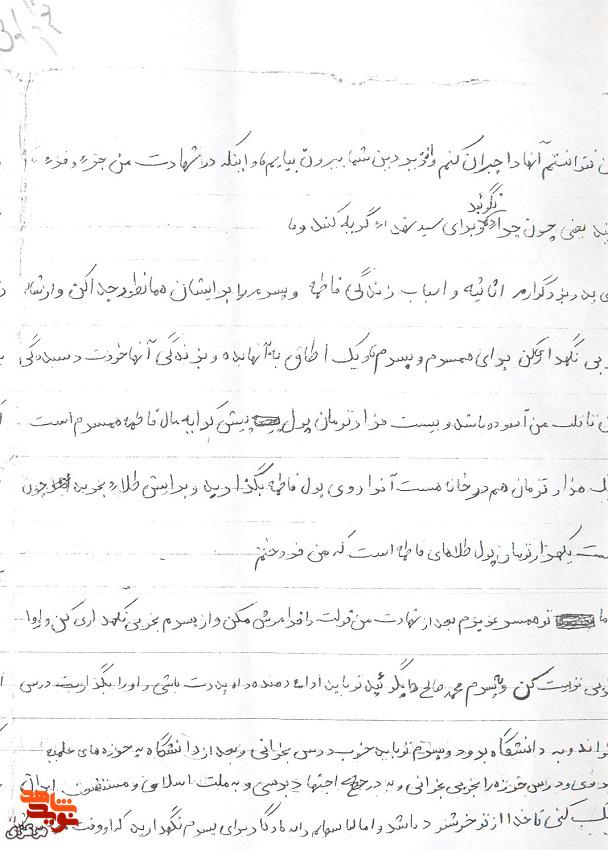 نتوانستم آنها را جبران کنم و از زیر دین شما بیرون بیایم و اینکه در شهادت من جزع و فزع
نگوئید
یعنی چون چرا و برای سید شهداء گریه کنند و ما
پدر بزرگوارم اثاثیه و اسباب زندگی فاطمه و پسرم را برایشان همانطور جدا کن و
نگهداری کن برای همسرم و پسرم و یک اطاق به آنها بده و بزندگی آنها خودت رسیدگی
تا قلب من آسوده باشد و بیست هزار تومان پول پیش کرایه مال فاطمه همسرم است
هزار تومان هم در خانه هست آنرا روی پول فاطمه بگذارید و برایش طلا بخرید چون
یکهزار تومان پول طلاهای فاطمه است که من فروختم
تو همسر عزیزم بعد از شهادت من قولت را فراموش مکن و از پسرم بخوبی نگهداری کن و او را
تربیت کن و پسرم محمد صالح را بگوئید تو باید ادامه دهنده راه پدرت باشی و او را بگذارید درس
بخواند و به دانشگاه برود و پسرم تو باید خوب درس بخوانی و بعد از دانشگاه به حوزه های علمیه
بروی و درس حوزه را بخوبی بخوانی و به درجه اجتهاد برسی و به ملت اسلامی و مستضعفین ایران
کنی تا خدا از تو خوشنود باشد و اما لباسهایم را به یادگار برای پسرم نگهدارید که او وقت
نوید شاهد